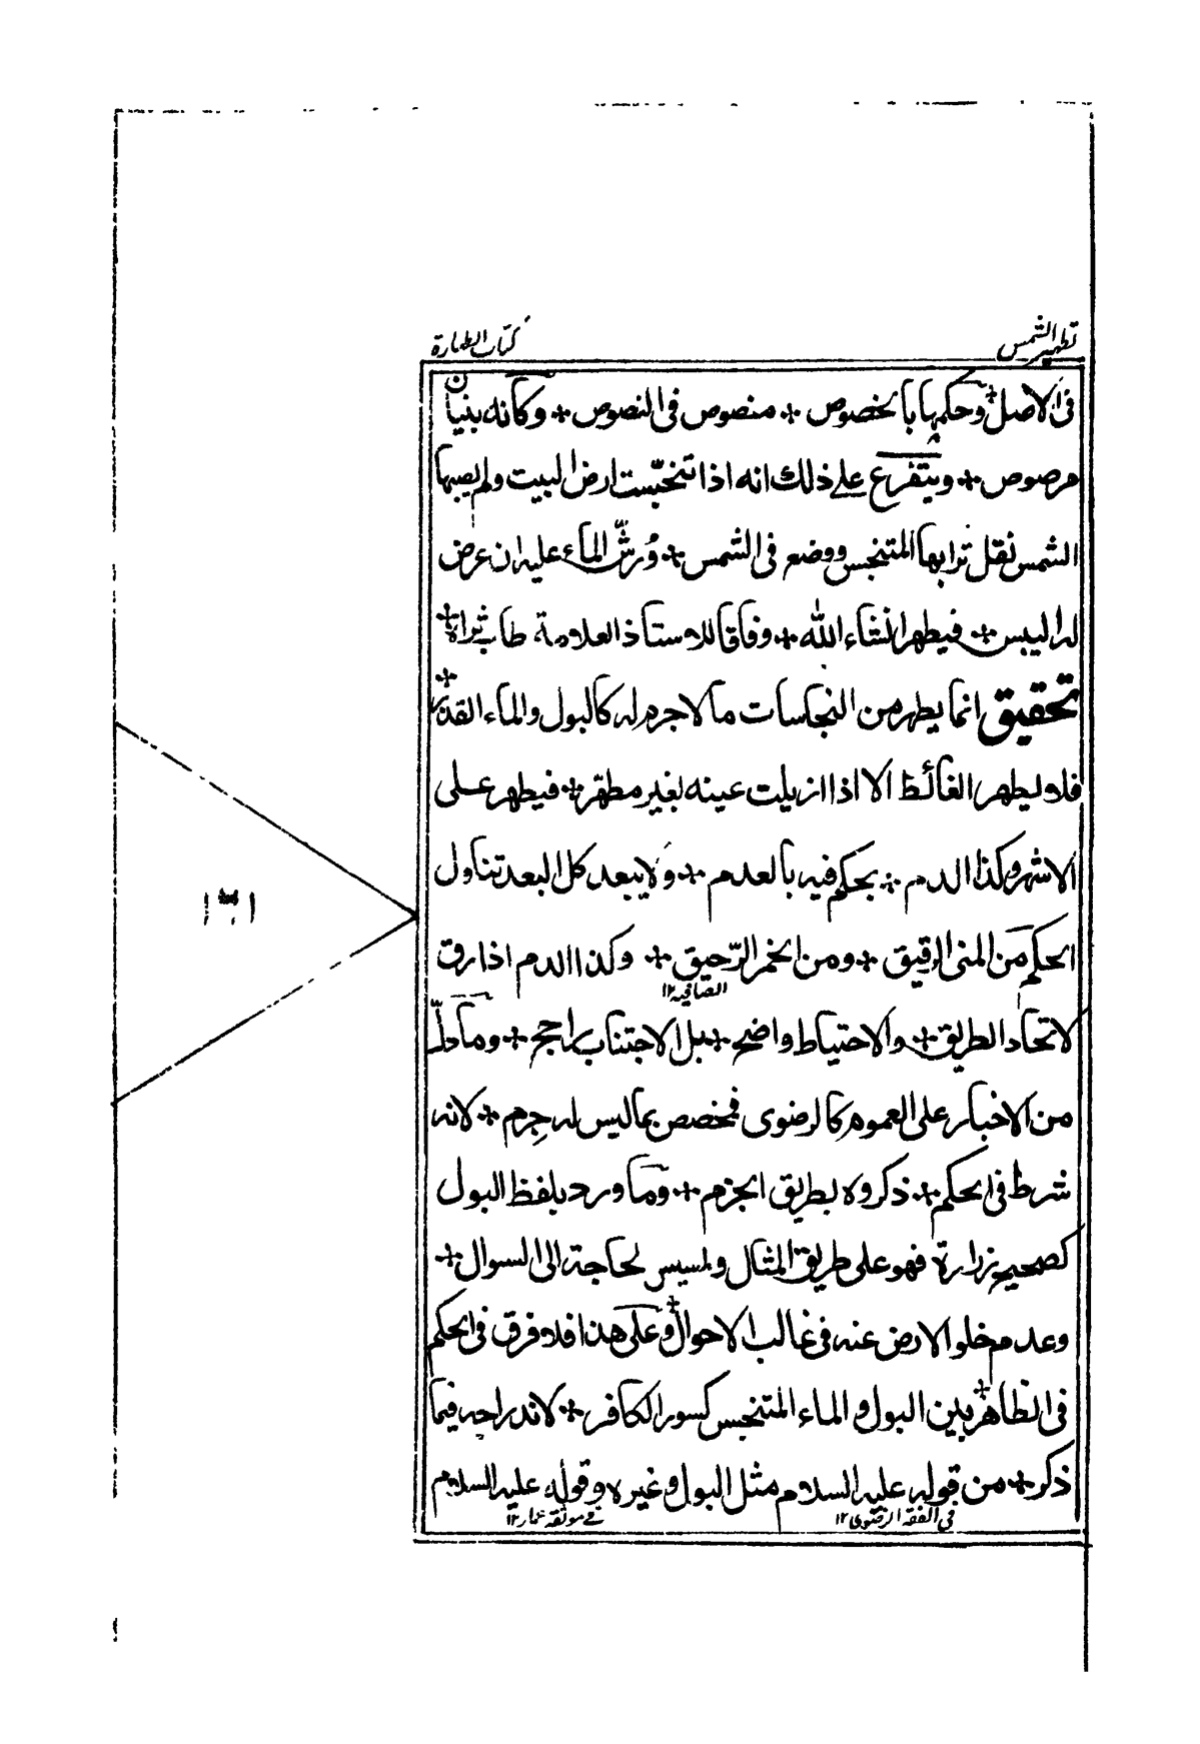 تطهير الشمس
كتاب الطهارة
فى الاصل + وحكمها بالخصوص + منصوص فى النصوص + وكانه بنيان
مرصوص + ويتفرع على ذلك انه اذا تنجّست ارض البيت ولم يصبها
الشمس نقل ترابها المتنجس ووضع فى الشمس + ورُشّ الماء عليه ان عرض
له اليبس + فيطهر انشاء الله + وفاقا للاستاذ العلامة طاب ثراه +
تحقيق انما يطهر من النجاسات ما لا جرم له كالبول والماء القذر +
فلا يطهر الغائط الا اذا ازيلت عينه بغير مطهّر + فيطهر على
الاشهر وكذا الدم + يحكم فيه بالعدم + ولا يبعد كل البعد تناول
الحكم من المنى الرقيق + ومن الخمر الرّحيق + وكذا الدم اذا رق
الصافية ١٢
لاتحاد الطريق + والاحتياط واضح + بل الاجتناب راجح + وما دلّ
من الاخبار على العموم كالرضوى فمخصص بما ليس له جِرم + لانه
شرط فى الحكم + ذكروه بطريق الجزم + وما ورد بلفظ البول
كصحيح زرارة فهو على طريق المثال ولمسيس الحاجة الى السوال +
وعدم خلو الارض عنه فى غالب الاحوال + وعلى هذا فلا فرق فى الحكم
فى الظاهر + بين البول والماء المتنجس كسور الكافر + لاندراجه فيما
ذكر + من قوله عليه السلام مثل البول وغيره وقوله عليه السلام
فى الفقه الرضوى ١٢
فى موثقة عمار ١٢